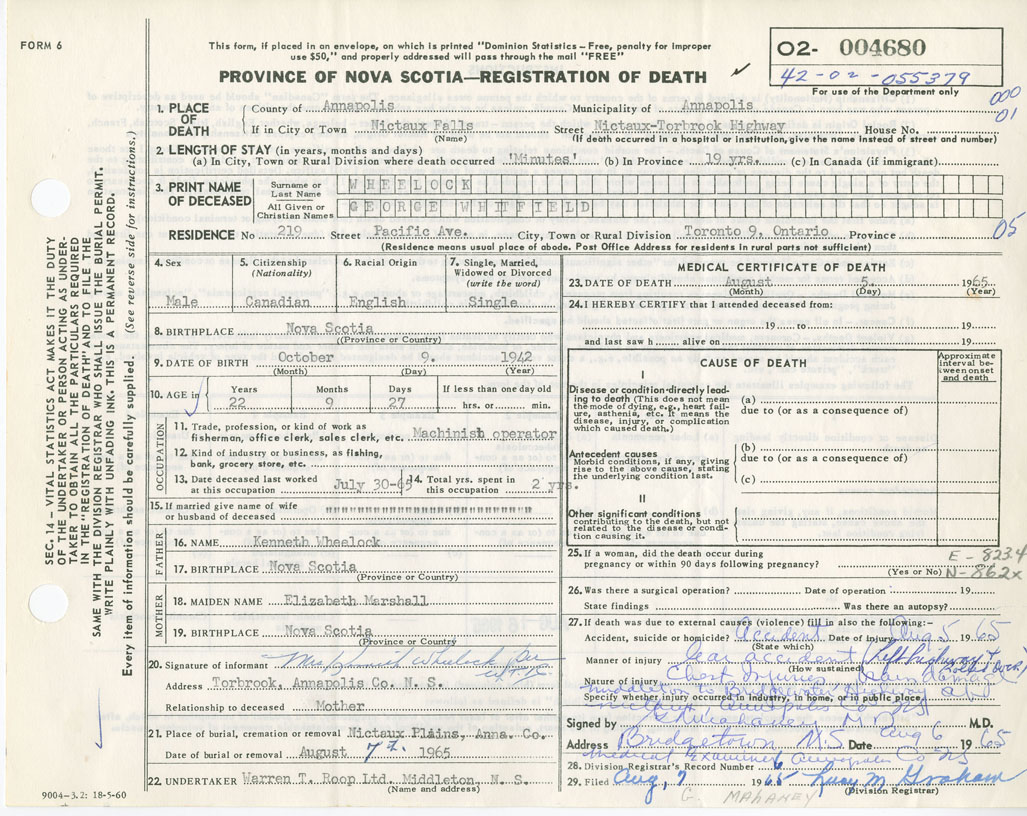 FORM 6
This form, if placed in an envelope, on which is printed "Dominion Statistics – Free, penalty for improper
use $50," and properly addressed will pass through the mail "FREE"
PROVINCE OF NOVA SCOTIA—REGISTRATION OF DEATH
O2- 004680
42-02-055379
For use of the Department only
000
01
05
1. PLACE OF DEATH
County of Annapolis Municipality of Annapolis
If in City or Town Nictaux Falls Street Nictaux-Torbrook Highway House No.
(Name) (If death occurred in a hospital or institution, give the name instead of street and number)
2. LENGTH OF STAY (in years, months and days)
(a) In City, Town or Rural Division where death occurred 'Minutes' (b) In Province 19 yrs. (c) In Canada (if immigrant)
3. PRINT NAME OF DECEASED
Surname or Last Name WHEELOCK
All Given or Christian Names GEORGE WHITFIELD
RESIDENCE No 219 Street Pacific Ave. City, Town or Rural Division Toronto 9, Ontario Province
(Residence means usual place of abode. Post Office Address for residents in rural parts not sufficient)
4. Sex Male
5. Citizenship (Nationality) Canadian
6. Racial Origin English
7. Single, Married, Widowed or Divorced (write the word) Single
8. BIRTHPLACE Nova Scotia
(Province or Country)
9. DATE OF BIRTH October 9. 1942
(Month) (Day) (Year)
10. AGE in Years 22 Months 9 Days 27 If less than one day old hrs. or min.
OCCUPATION
11. Trade, profession, or kind of work as
fisherman, office clerk, sales clerk, etc. Machinish operator
12. Kind of industry or business, as fishing,
bank, grocery store, etc.
13. Date deceased last worked at this occupation July 30-65
14. Total yrs. spent in this occupation 2 yrs.
15. If married give name of wife
or husband of deceased """"""""""""""""""""
FATHER
16. NAME Kenneth Wheelock
17. BIRTHPLACE Nova Scotia
(Province or Country)
MOTHER
18. MAIDEN NAME Elizabeth Marshall
19. BIRTHPLACE Nova Scotia
(Province or Country)
20. Signature of informant Mrs Kenneth Wheelock Per
Address Torbrook, Annapolis Co. N. S.
Relationship to deceased Mother
21. Place of burial, cremation or removal Nictaux Plains, Anna. Co.
Date of burial or removal August 7th. 1965
22. UNDERTAKER Warren T. Roop Ltd. Middleton, N. S.
(Name and address)
9004–3.2: 18-5-60
MEDICAL CERTIFICATE OF DEATH
23. DATE OF DEATH August 5. 1965
(Month) (Day) (Year)
24. I HEREBY CERTIFY that I attended deceased from:
19 to 19
and last saw h alive on 19
CAUSE OF DEATH
Approximate interval between onset and death
I
Disease or condition directly leading to death (This does not mean the mode of dying, e.g., heart failure, asthenia, etc. It means the disease, injury, or complication which caused death.)
(a)
due to (or as a consequence of)
Antecedent causes
Morbid conditions, if any, giving rise to the above cause, stating the underlying condition last.
(b)
due to (or as a consequence of)
(c)
II
Other significant conditions
contributing to the death, but not related to the disease or condition causing it.
25. If a woman, did the death occur during
pregnancy or within 90 days following pregnancy?
(Yes or No)
E-8234
N-862X
26. Was there a surgical operation? Date of operation 19
State findings Was there an autopsy?
27. If death was due to external causes (violence) fill in also the following:-
Accident, suicide or homicide? Accident Date of injury Aug 5 1965
(State which)
Manner of injury Car accident (Left highway &
(How sustained)
Nature of injury Chest Injuries
Specify whether injury occurred in industry, in home, or in public place.
Middleton to Bridgewater Highway at
Nictaux, Annapolis Co NS
Signed by M D M.D.
Address Bridgetown N.S. Date Aug 6 1965
Medical Examiner Annapolis Co NS
28. Division Registrar's Record Number 6
29. Filed Aug, 7 1965 Lucy M. Graham
(Division Registrar)
G. MAHANEY
SEC. 14 – VITAL STATISTICS ACT MAKES IT THE DUTY
OF THE UNDERTAKER OR PERSON ACTING AS UNDER-
TAKER TO OBTAIN ALL THE PARTICULARS REQUIRED
IN THE "REGISTRATION OF DEATH" AND TO FILE THE
SAME WITH THE DIVISION REGISTRAR WHO SHALL ISSUE THE BURIAL PERMIT.
WRITE PLAINLY WITH UNFADING INK. THIS IS A PERMANENT RECORD.
Every item of information should be carefully supplied. (See reverse side for instructions.)